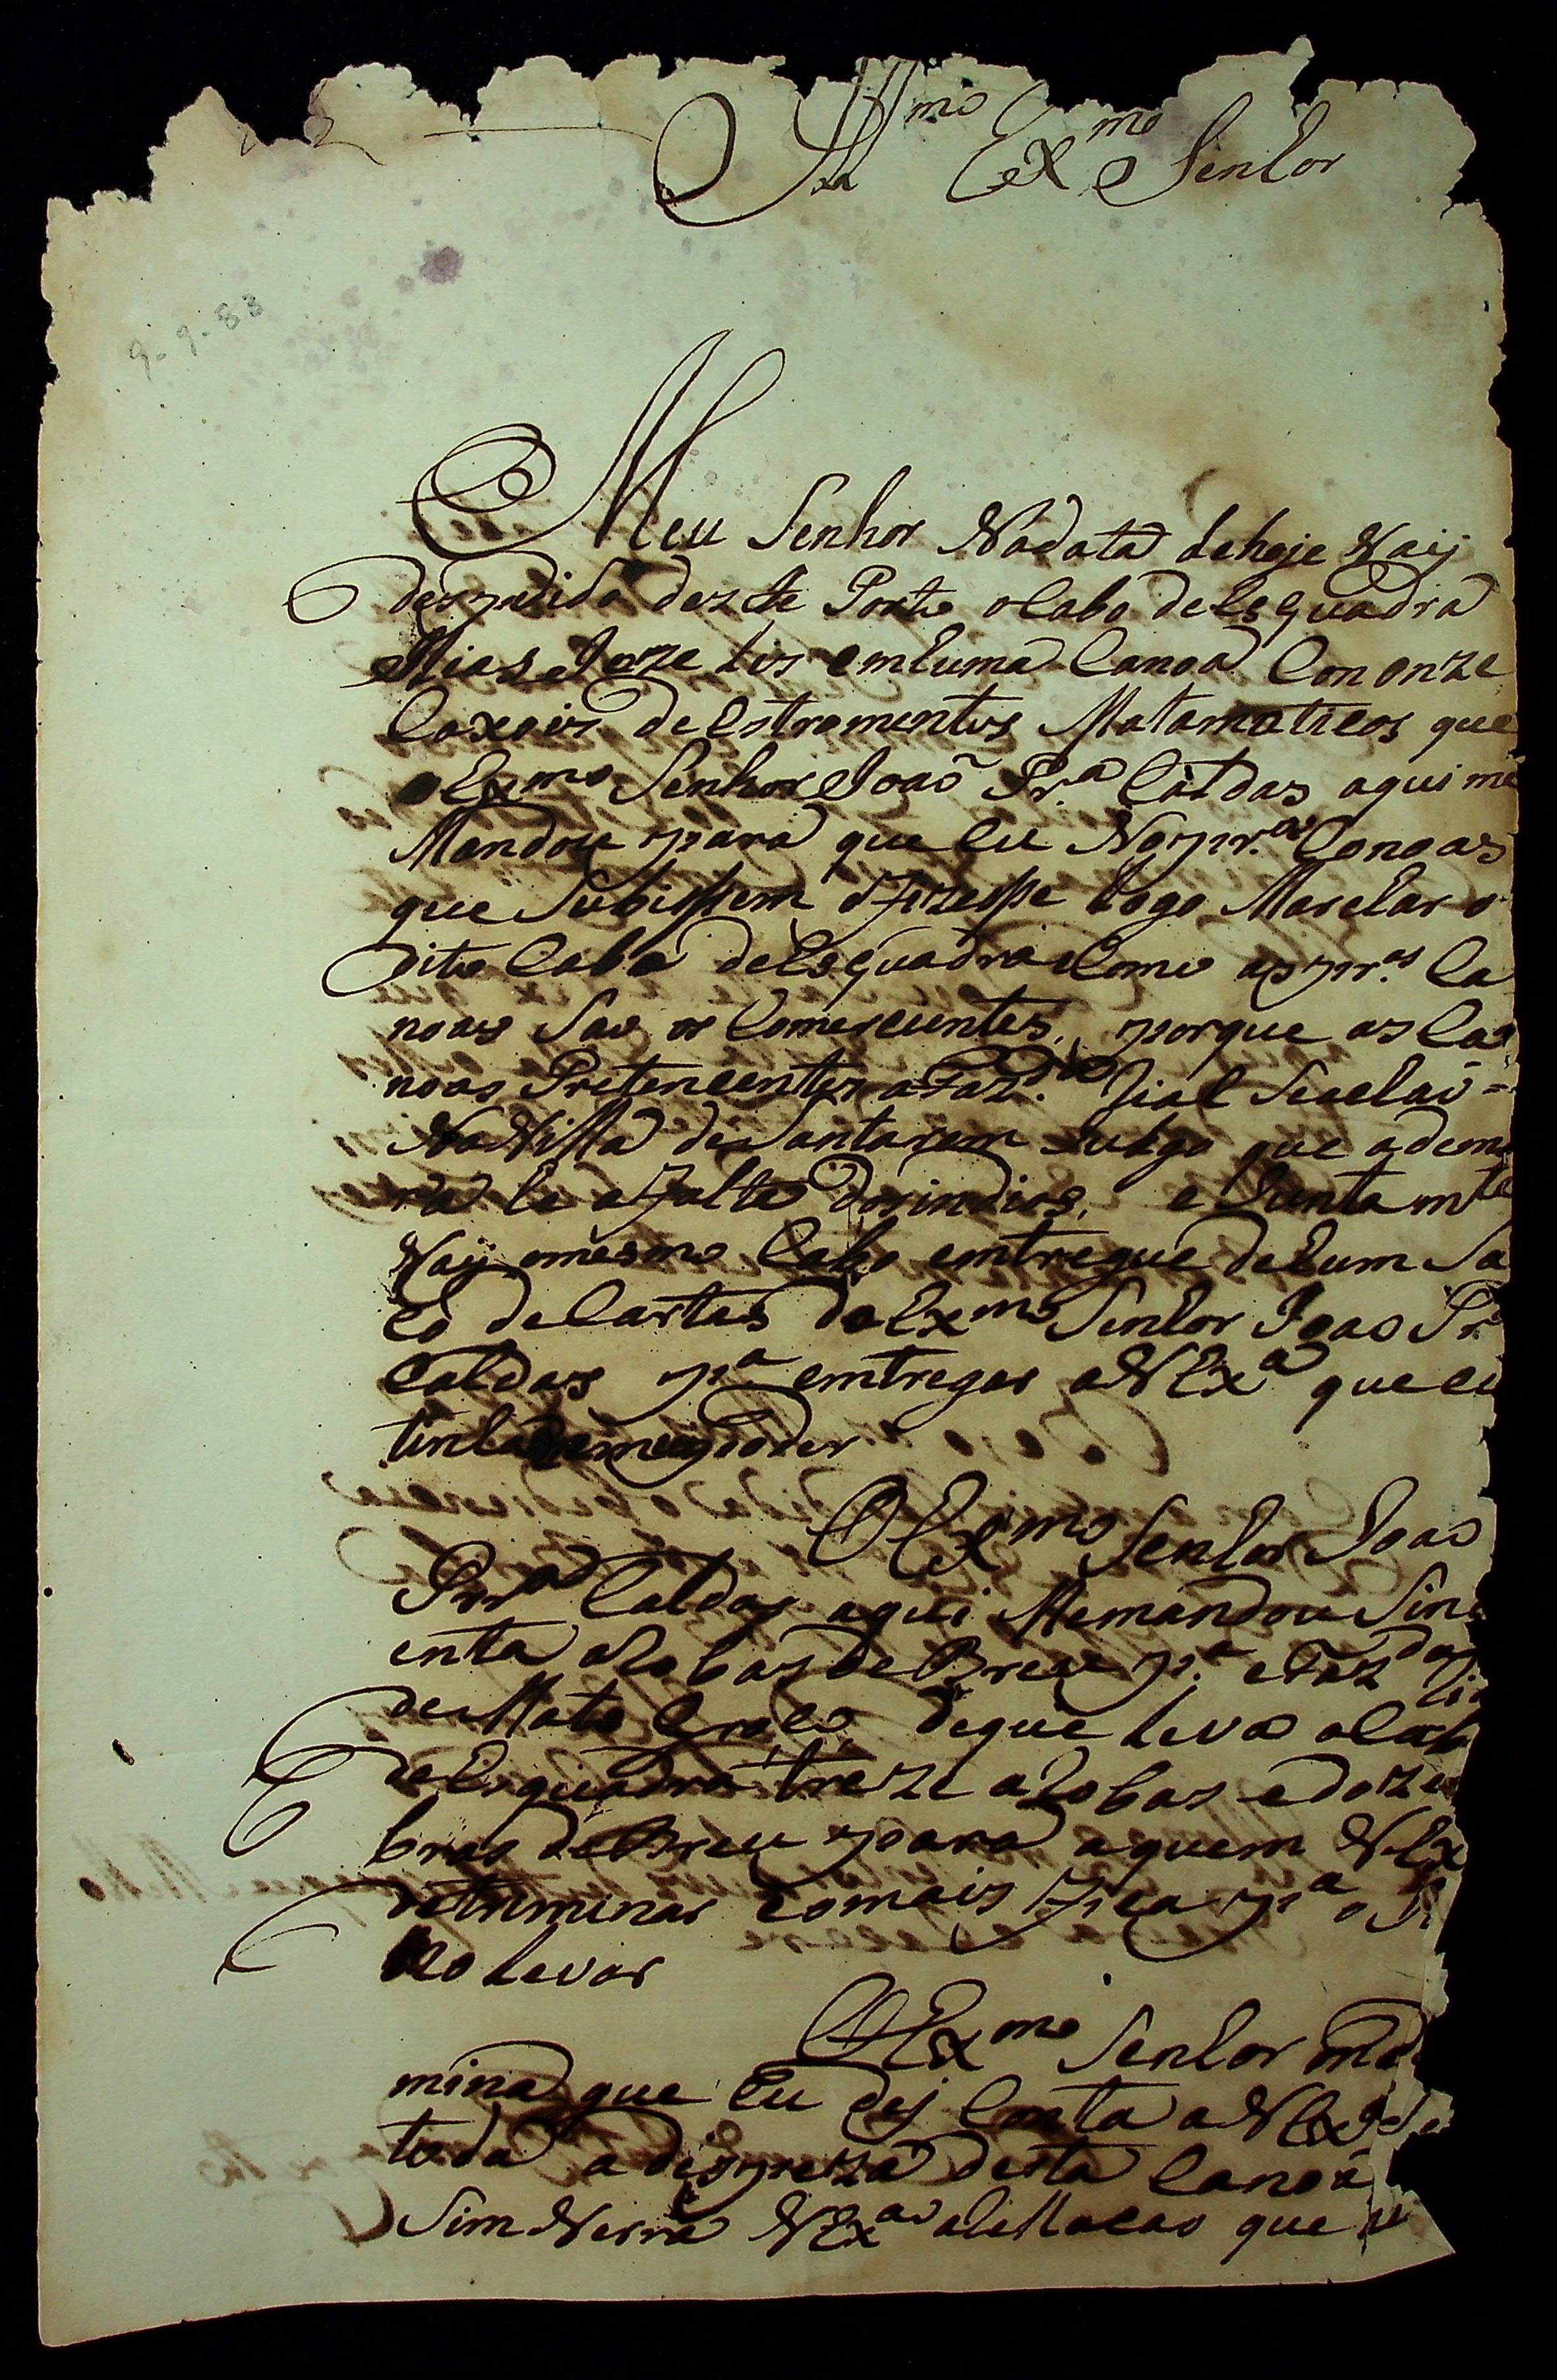 Ill.mo Ex.mo Senhor
9-9-83
Meu Senhor Nadata dehoje Vaij
despidido dezte Porto oCabo deEsquadra
Joze emhuma Canoa Con onze
Caxois de Estromentos Matamaticos que
o Ex.mo Senhor Joaõ Pr.a Caldas aqui me
Mandou para que Eu Nas pr.as Canoas
que Subissem Fizesse Logo Marchar o
dito Cabo deEsquadra Como as pr.as Ca
noas Sao os Comerciantes, porque as Ca
noas Pretencentes aFaz.da Rial Seachaõ
NaVilla de Santarem Julgo que adem
ra he a Falta dos indios, e Junta m.te
Vaij omesmo Cabo emtregue dehum Sa
co deCartas do Ex.mo Senhor Joao Pr.a
Caldas p.a emtregar aVEx.a que eu
tinha em meu poder
O Ex.mo Senhor Joao
Prr.a Caldas aqui Memandou Sinc
enta Arobas de Breu p.a a Faz.da
de Mato Groço, deque Leva oCabo
deEsquadra treze aRobas edoze
bras deBreu para aquem VEx
detriminar eomais Fica p.a
Levar
O Ex.mo Senhor
mina que Eu dej Conta aVEx.a de
toda a despreza desta Canoa
Sim Verá VEx.a aRellacao que